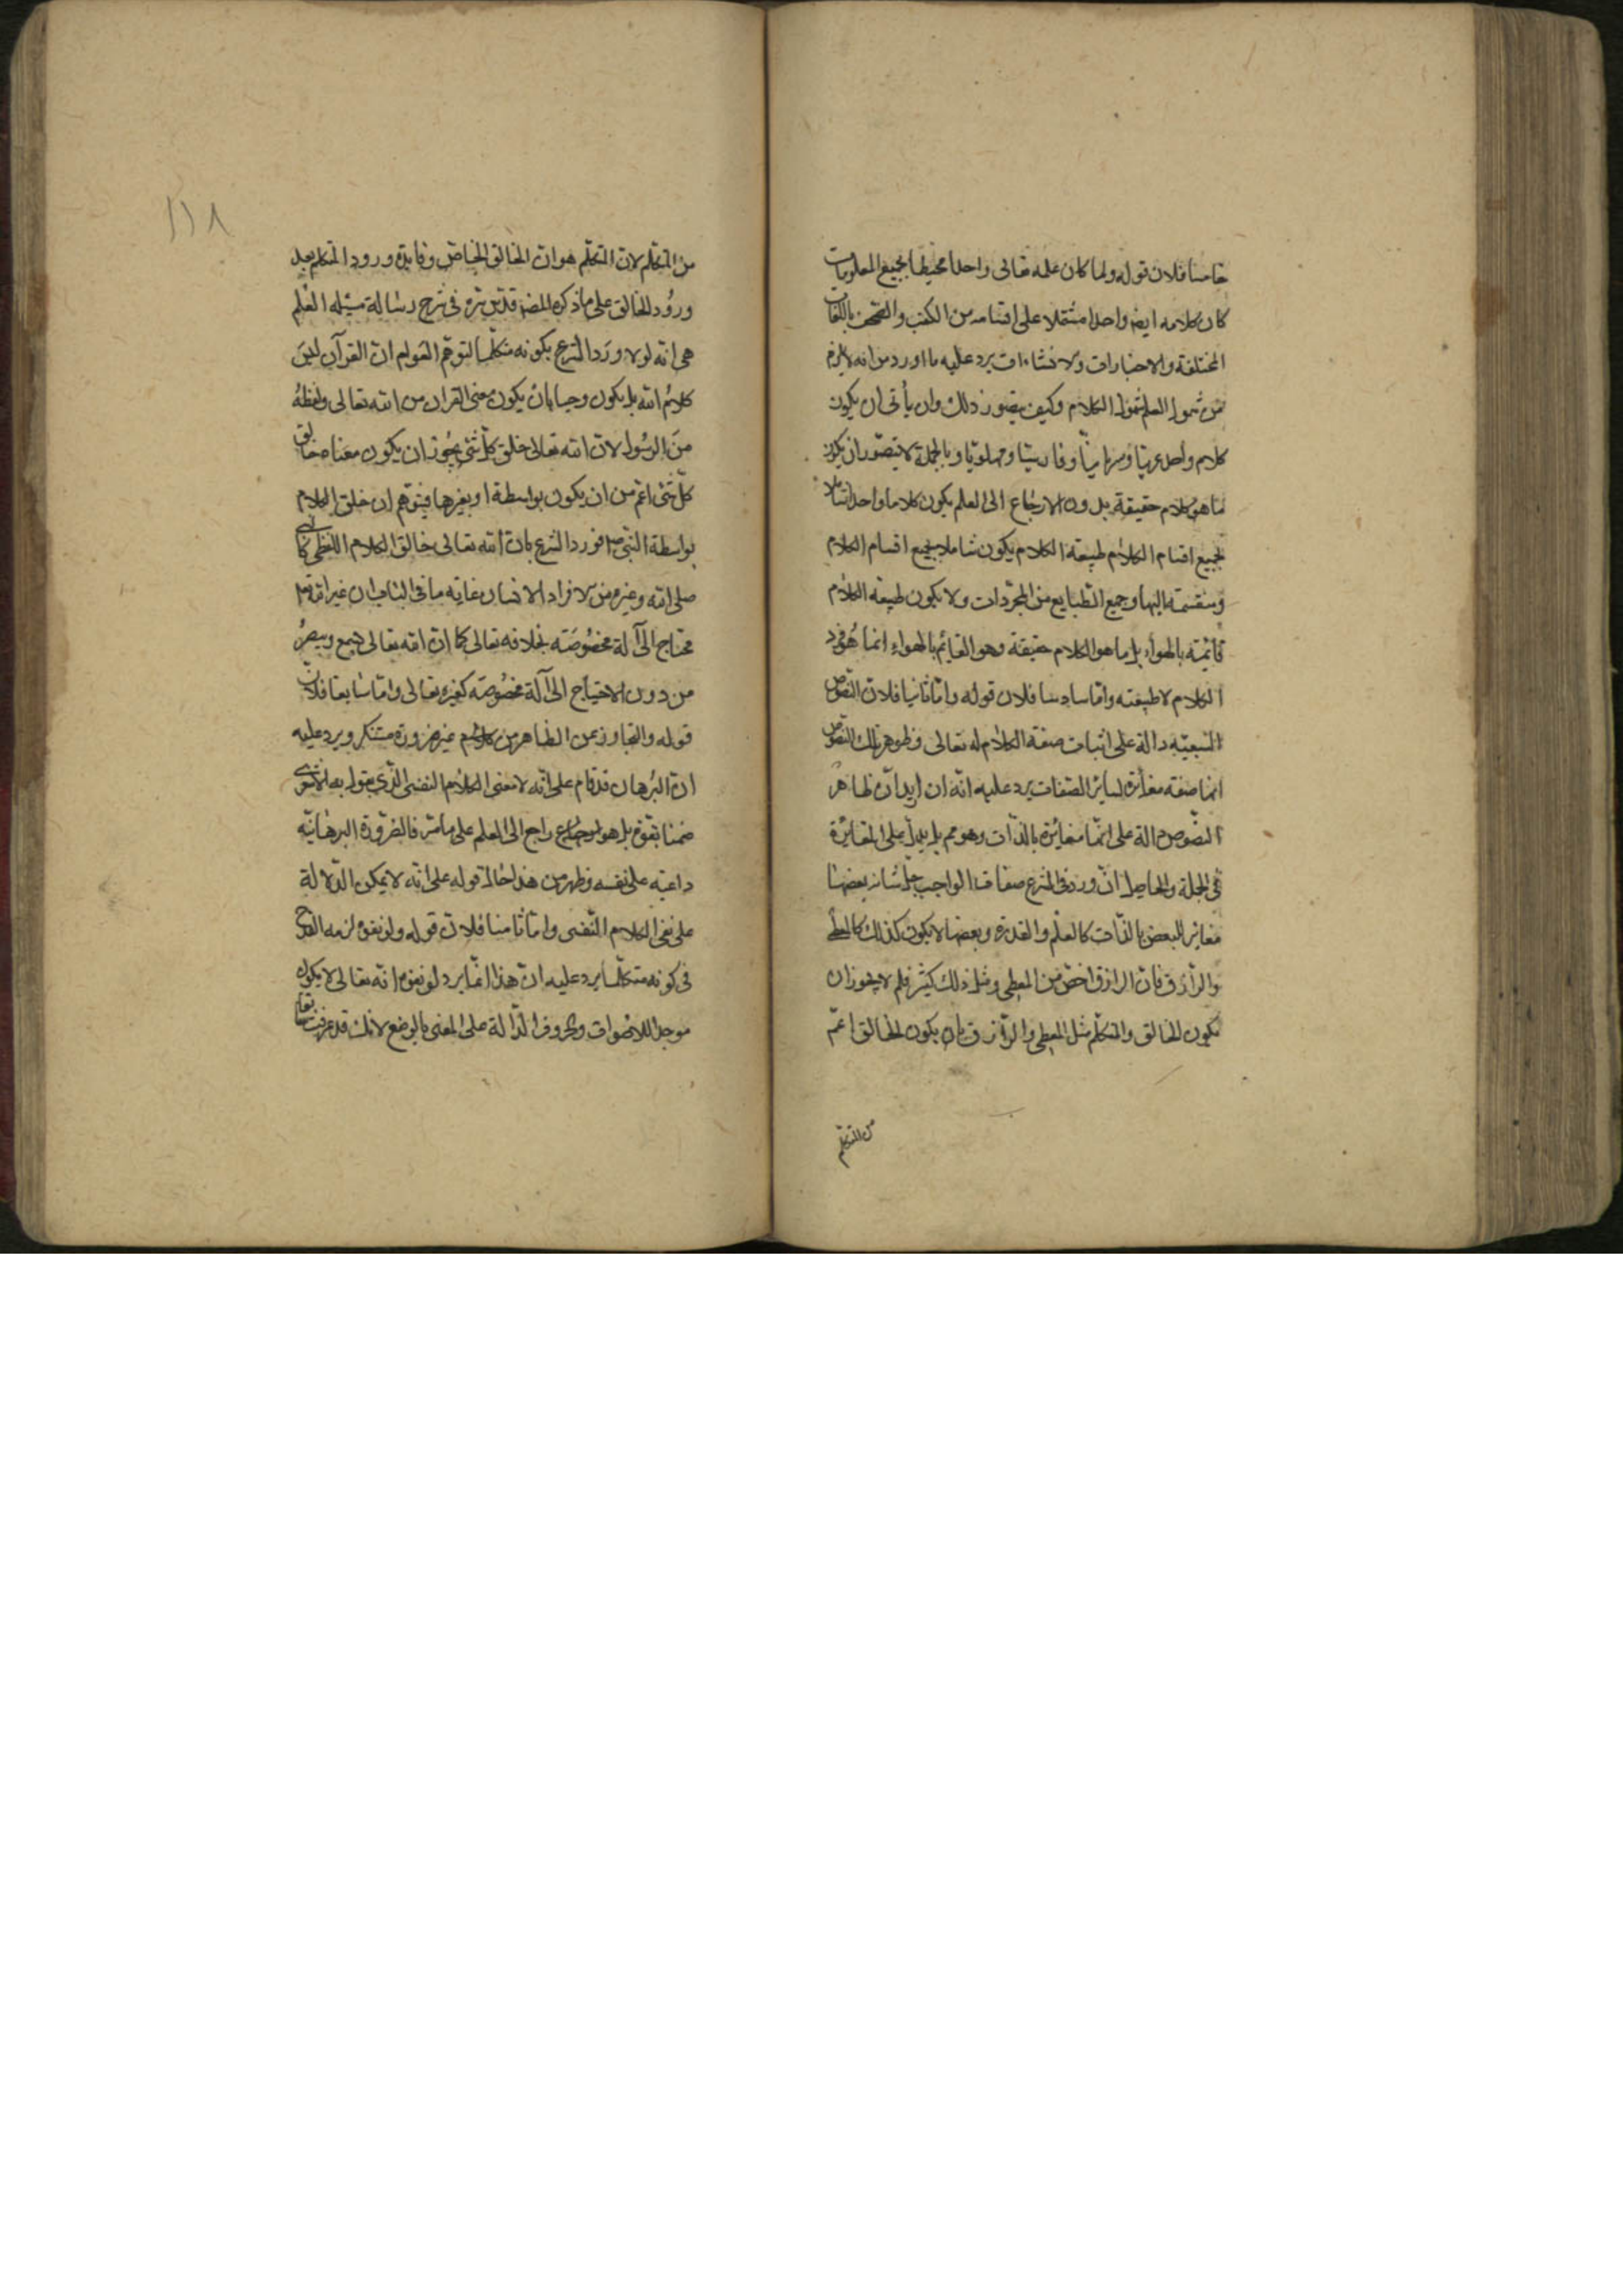 خامسا فلان قوله ولما كان علمه تعالى واحدا محيطا بجميع المعلومات
كان كلامه ايضا واحدا مشتملا على اقسامه من الكتب والصحف باللغات
المختلفة والاخبارات والانشاءات يرد عليه ما اورد من انه لا يلزم
من شمول العلم شمول الكلام وكيف يتصور ذلك وان يأتى ان يكون
كلام واحد عربيا وسريانيا وفارسيا وپهلويا وبالجملة لا يتصور ان يكون
ما هو كلام حقيقة بدون الارجاع الى العلم يكون كلاما واحدا شاملا
لجميع اقسام الكلام لطبيعة الكلام يكون شاملا لجميع اقسام الكلام
ومنقسمة اليها وجميع الطبايع من المجردات ولا يكون طبيعة الكلام
قائمة بالهواء بل ما هو الكلام حقيقة وهو القايم بالهواء انما هو فرد
الكلام لا طبيعته واما سادسا فلان قوله واما ثانيا فلان النصوص
السمعيه دالة على اثبات صفة الكلام له تعالى وظواهر تلك النصوص
انها صفة مغايرة لساير الصفات يرد عليه انه ان اريد ان ظاهر
النصوص دالة على انها مغايرة بالذات وهو مم بل يدل على المغايرة
فى الجملة والحاصل ان ورد فى الشرع صفات الواجب جل شانه بعضها
مغاير للبعض بالذات كالعلم والقدرة وبعضها لا يكون كذلك كالمعطى
والرازق فان الرازق اخص من المعطى ومثل ذلك كثير فلم لا يجوز ان
يكون الخالق والمتكلم مثل المعطى والرازق بان يكون الخالق اعم
من المتكلم
١١٨
من المتكلم لان المتكلم هو ان الخالق الخاص وفايدة ورود المتكلم بعد
ورود الخالق على ما ذكره المصـ قدس سره فى شرح رسالة مسئله العلم
هى انه لو لا ورد الشرع بكونه متكلما لتوهم العوام ان القرآن ليس
كلام الله بل يكون وحيا بان يكون معنى القران من الله تعالى ولفظه
من الرسول لان الله تعالى خلق كل شئ يجوز ان يكون معناه خالق
كل شئ اعم من ان يكون بواسطة او بغيرها فيتوهم ان خلق الكلام
بواسطة النبى صـ فورد الشرع بان الله تعالى خالق الكلام اللفظى كالنبى
صلى الله وغيره من الافراد الانسان غاية ما فى الباب ان غير الله تعـ
محتاج الى آلة مخصوصه بخلافه تعالى كما ان الله تعالى يسمع ويبصر
من دون الاحتياج الى آلة مخصوصه كغيره تعالى واما سابعا فلان
قوله والتجاوز عن الظاهر من كلامهم غير ضرورة مستنكر ويرد عليه
ان البرهان قد قام على انه لا معنى الكلام النفسى الذى يقول به الاشعرى
هو راجع الى العلم على ما مر فالضرورة البرهانيه
داعيه على نفسه وظهر من هذا حال قوله على انه لا يمكن الدلالة
على نفى الكلام النفسى واما ثامنا فلان قوله ولو نفوه لزمه القدح
فى كونه متكلما يرد عليه ان هذا انما يرد لو نفوه انه تعالى لا يكون
موجدا للاصوات والحروف الدالة على المعنى بالوضع لانك قد عرفت سابقا